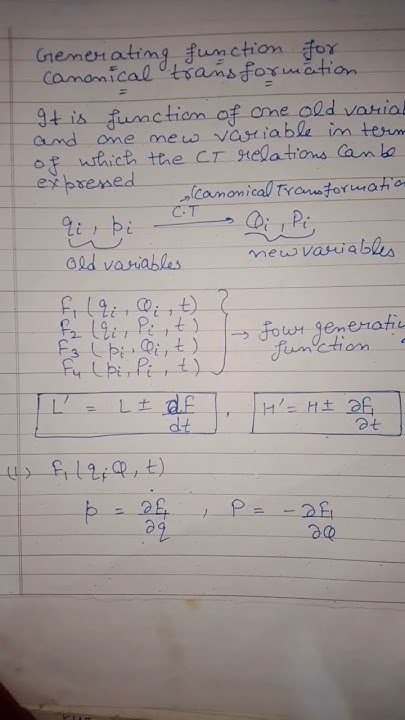 Generating function for
canonical transformation
It is function of one old variab
and one new variable in term
of which the CT relations can be
expressed
(Canonical Transformation
qi, pi C.T → Qi, Pi
old variables new variables
F1 (qi, Qi, t)
F2 (qi, Pi, t)
F3 (pi, Qi, t)
F4 (pi, Pi, t)
→ four generatin
function
L' = L ± dF/dt , H' = H ± ∂F1/∂t
(1) F1 (q, Q, t)
p = ∂F1/∂q , P = -∂F1/∂Q